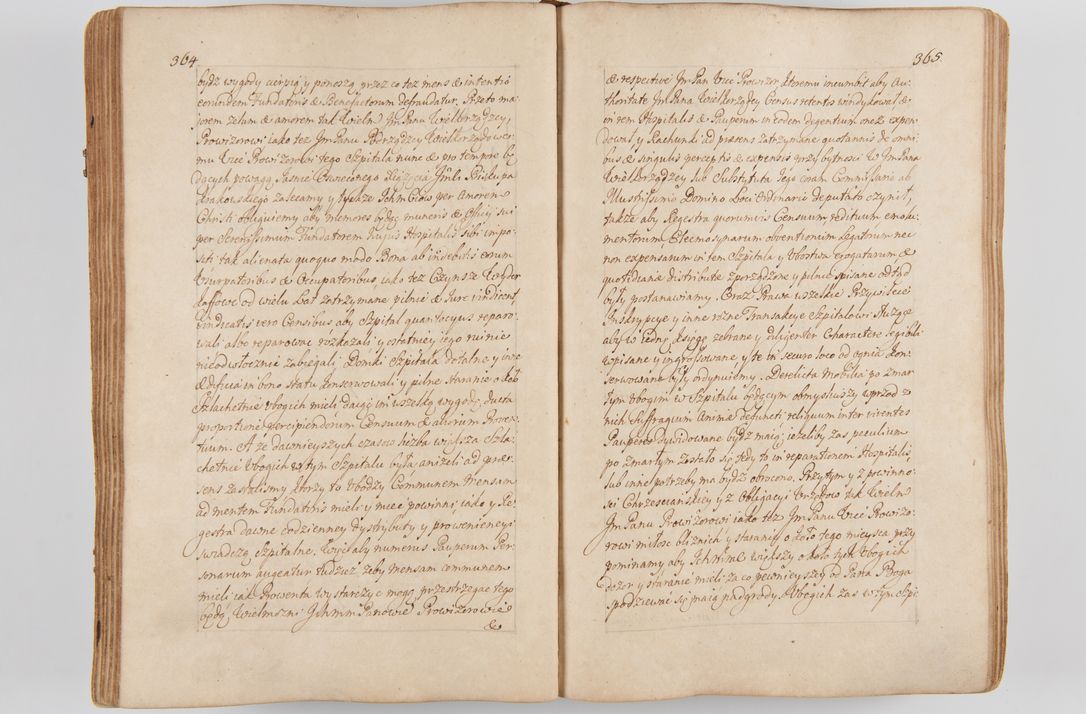 364.
bydz wygody cierpią y ponoszą, przez co tez mens & intentio
eorundem Fundatoris & Benefactorum defraudatur. Przeto ma-
jorem zelum & amorem tak Wielm Jm Panu Wielkorządzcy
Prowizorowi iako tez Jm Panu Podrządzcy Wielkorządowe-
mu Vice Prowizorowi tego Szpitala nunc & pro tempore bę-
dących powagą Jasnie Oswieconego Xiążęcia Jmci Biskupa
Krakowskiego zalecamy y tychze Ichmciow per Amorem
Christi obliguiemy aby memores będąc muneris & Officij sui
per Serenissimum Fundatorem hujus Hospitalis sibi impo-
siti tak alienata quoquo modo Bona ab indebitis eorum
Usurpatoribus & Occupatoribus, iako tez Czynsze Wyder
kaffowe od wielu Lat zatrzymane pilnie & Jure vindicent,
vindicatis vero Censibus aby Szpital quantocyus reparo-
wali albo reparowac rozkazali y ostatniey iego ruinie
nieodwłocznie zabiegali, Domki Szpitala dotalne y inne
Ædificia in bono statu konserwowali y pilne staranie około
Szlachetnie Ubogich mieli daiąc im wszelką wygodę, ducta
proportione percipiendorum Censuum & aliorum Proven-
tuum. A ze dawnieyszych czasow liczba większa Szla-
chetnie Ubogich w tym Szpitalu była anizeli ad præ-
sens zastalismy ktorzy to Ubodzy Communem Mensam
ad mentem Fundatoris mieli y miec powinni, iako y Re-
gestra dawne codzienney dystrybuty y prowenienciyi
swiadczą Szpitalne, Wzwyz takly numerus Pauperum Per-
sonarum augeatur tudziez zeby mensam communem
mieli iak Prowenta wystarczyc mogą, przestrzegac tego
będą Wielmozni Ichmm Panowie Prowizorowie
&
365.
& respectivè Jm Pan Vice Prowizor, ktoremu incumbit aby Au-
thoritate Jm Pana Wielkorządcy Census retentos windykował &
in rem Hospitalis & Pauperum in eodem degentium onez expen-
dował, y Rachunki ad præsens zatrzymane quotannis de omni-
bus & singulis perceptis & expensis przy bytnosci W Jm Pana
Wielkorządzcy lub Substytuta Jego coram Commissario ab
Illustrissimo Domino Loci Ordinario deputato czynił,
także aby Regestra quorumvis Censuum redituum emolu-
mentorum Eleemosynarum obventionum Legatorum nec
non expensarum in rem Szpitala y Ubostwa erogatarum &
quotidianè distributæ zporządzone y pilnie spisane odtąd
były postanawiamy. Oraz Prawa wszelkie Przywileie
Inskrypcye y inne rożne Transakcye Szpitalowi służące
aby w iedną Xięgę zebrane y diligenter Charactere legibili
wpisane y ingrossowane y te in securo loco od ognia kon-
serwowane były ordynuiemy. Derelicta Mobilia po Zmar-
łym Ubogim w Szpitalu będącym obmysliwszy wprzod z
nich Suffragium Animæ defuncti reliquum inter viventes
Pauperes dywidowane bydz maią, iezeliby zas peculium
po Zmarłym zostało się tedy to in reparationem Hospitalis
lub inne potrzeby ma bydz obrocono. Przytym y z powinno-
sci Chrzescianskiey y z Obligacyi Urzędowey tak Wielm
Jm Panu Prowizorowi iako tez Jm Panu Vice Prowizo-
rowi miłosc bliznich y staranie o dobro tego mieysca przy
pominamy aby Ichmme większy około tych Ubogich
dozor y staranie mieli za co pewnieyszey od Pana Boga
spodziewac się maią nadgrody. Ubogich zas w tym Szpi-